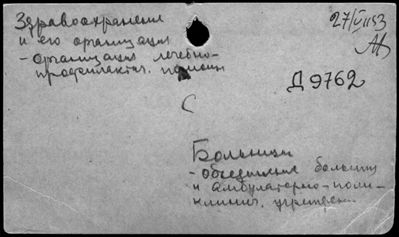 Здравоохранение
и его организация
- Организация лечебно-
профилактич. помощи
27/VII 53
Д 9762
С
Больницы
- Объединение больниц
и амбулаторно-поли-
клинич. учрежден.